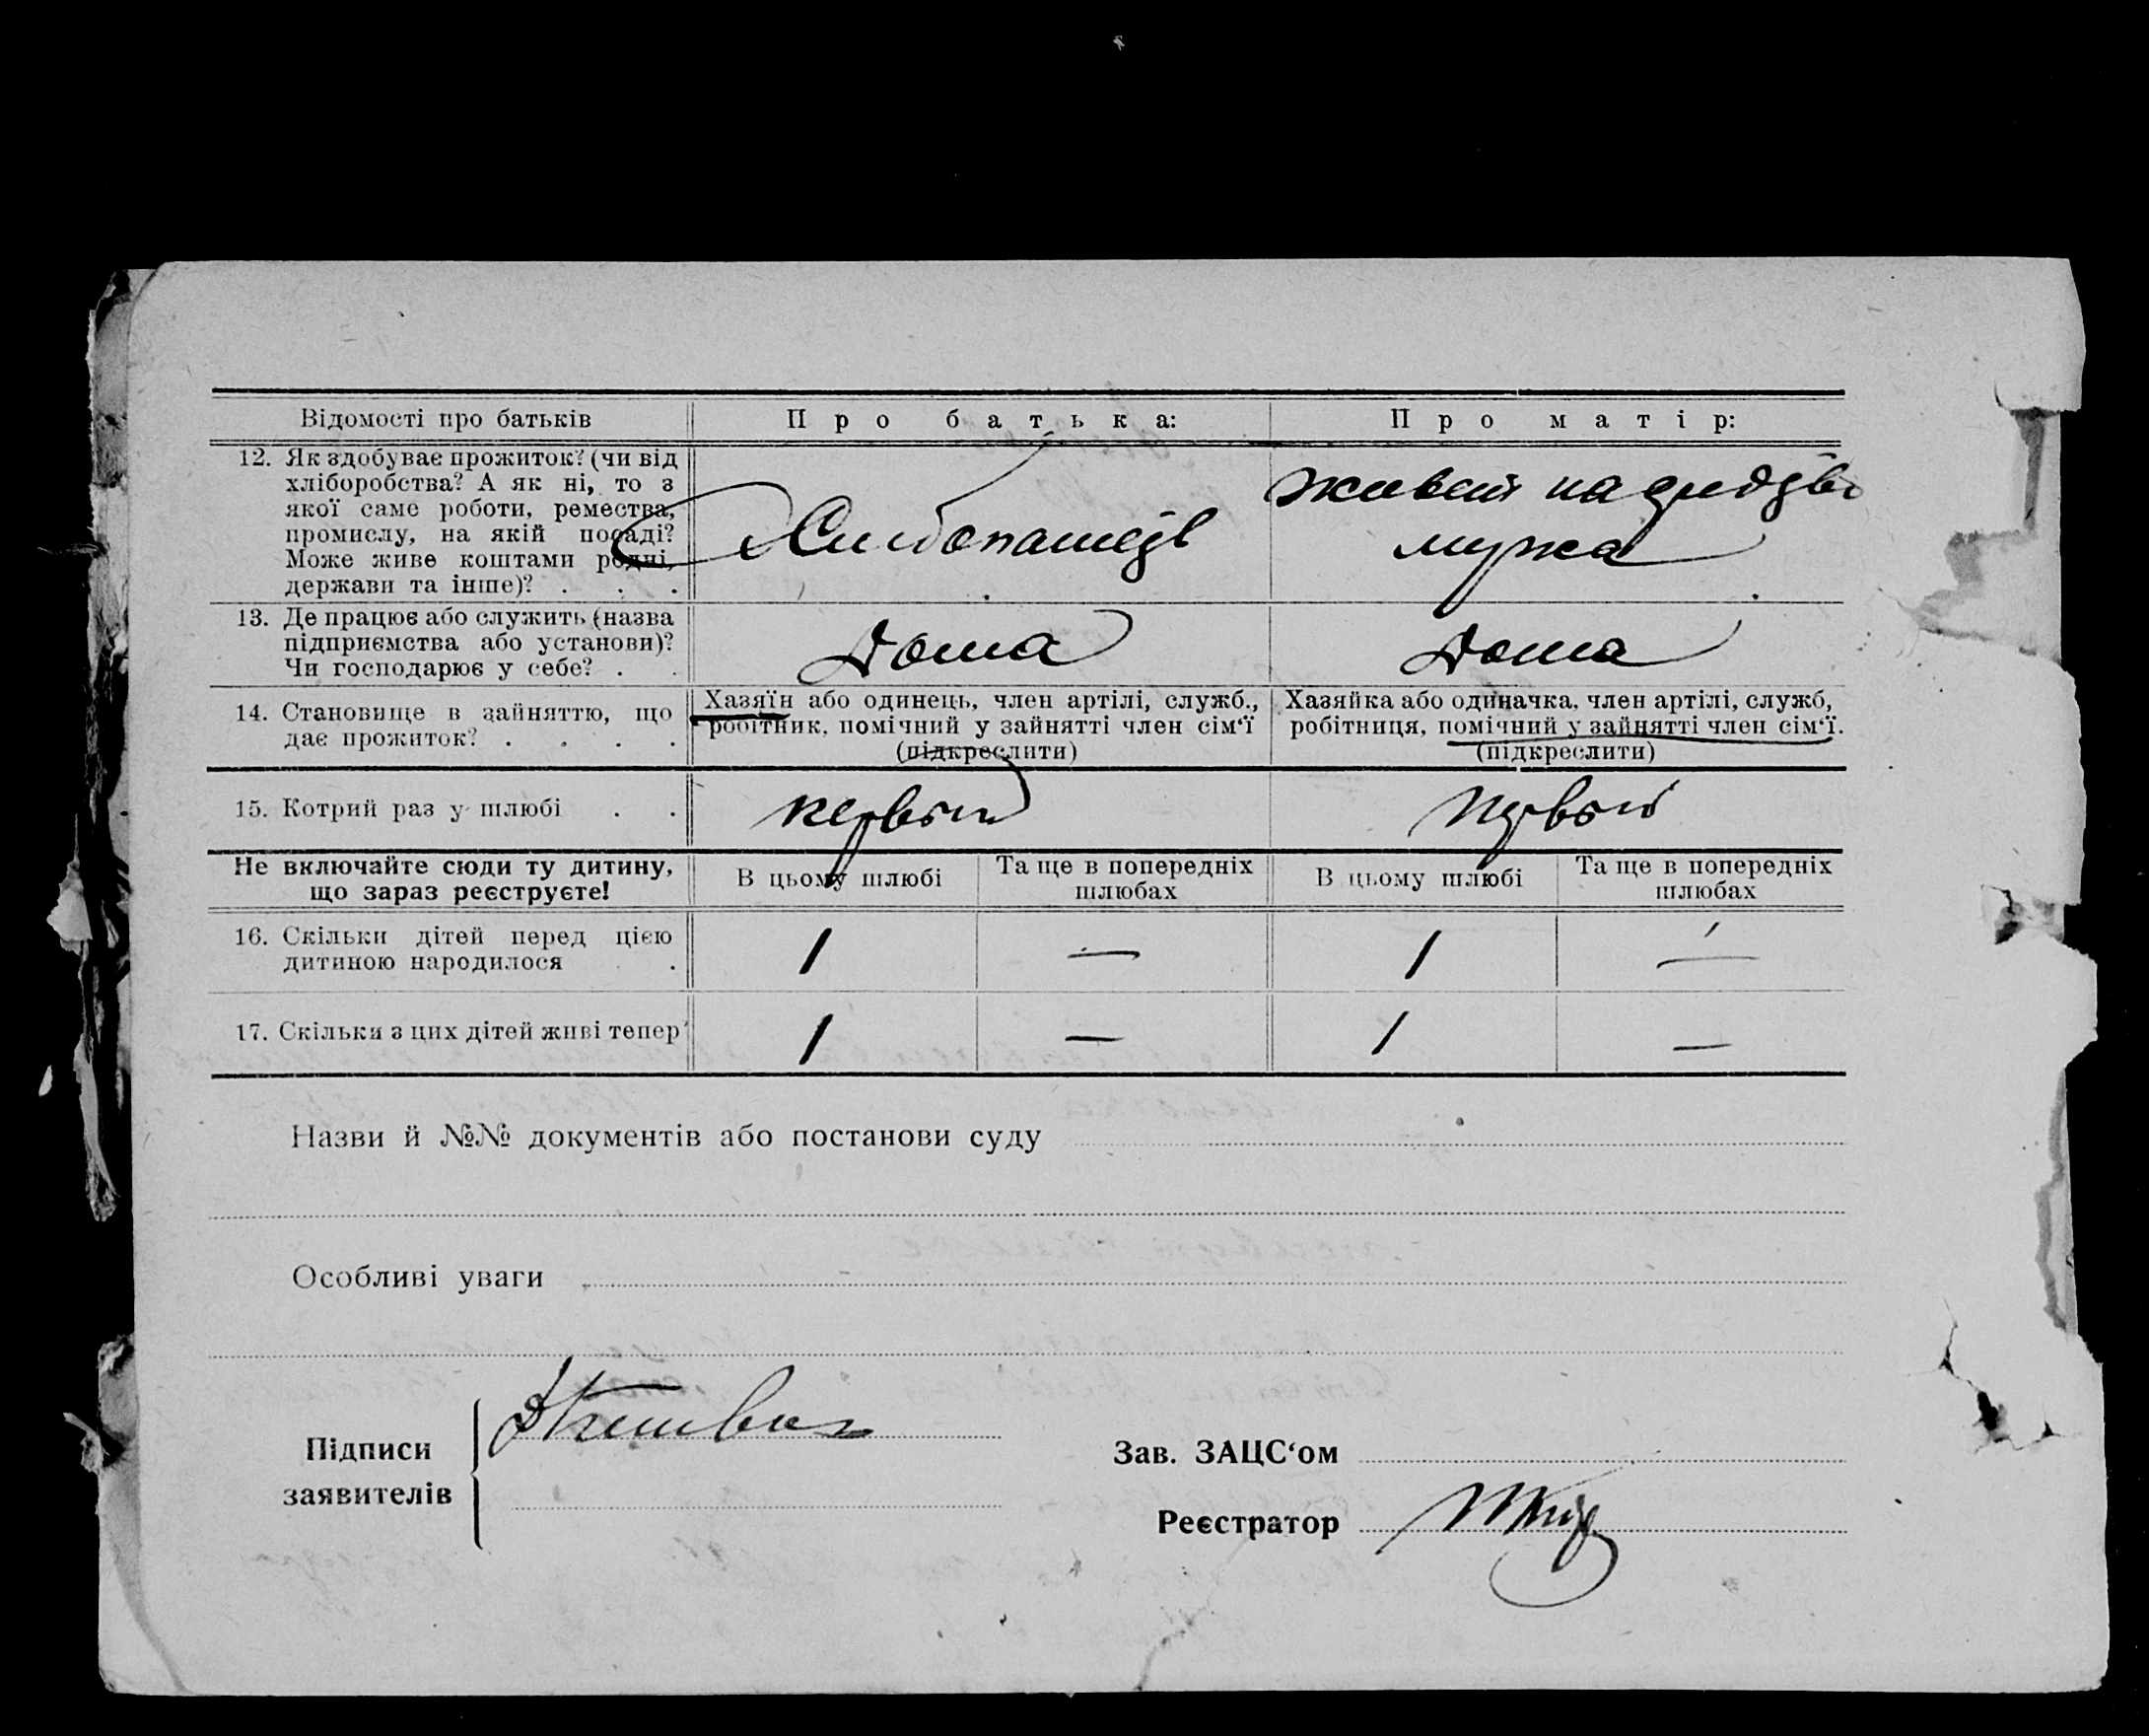 Відомості про батьків
Про батька:
Про матір:
12. Як здобуває прожиток? (чи від
хліборобства? А як ні, то з
якої саме роботи, ремества,
промислу, на якій посаді?
Може живе коштами родні,
держави та інше)? . . .
Хлібопашезв
живет на средзва
мужа
13. Де працює або служить (назва
підприємства або установи)?
Чи господарює у себе? . .
Дома
Дома
14. Становище в зайняттю, що
дає прожиток? . . . .
Хазяїн або одинець, член артілі, служб.,
робітник, помічний у зайнятті член сім‘ї
(підкреслити)
Хазяйка або одиначка, член артілі, служб,
робітниця, помічний у зайнятті член сім‘ї.
(підкреслити)
15. Котрий раз у шлюбі . .
первый
первый
Не включайте сюди ту дитину,
що зараз реєструєте!
В цьому шлюбі
Та ще в попередніх
шлюбах
В цьому шлюбі
Та ще в попередніх
шлюбах
16. Скільки дітей перед цією
дитиною народилося .
1 — 1 —
17. Скільки з цих дітей живі тепер
1 — 1 —
Назви й №№ документів або постанови суду
Особливі уваги
Підписи
заявителів
Зав. ЗАЦС‘ом
Реєстратор